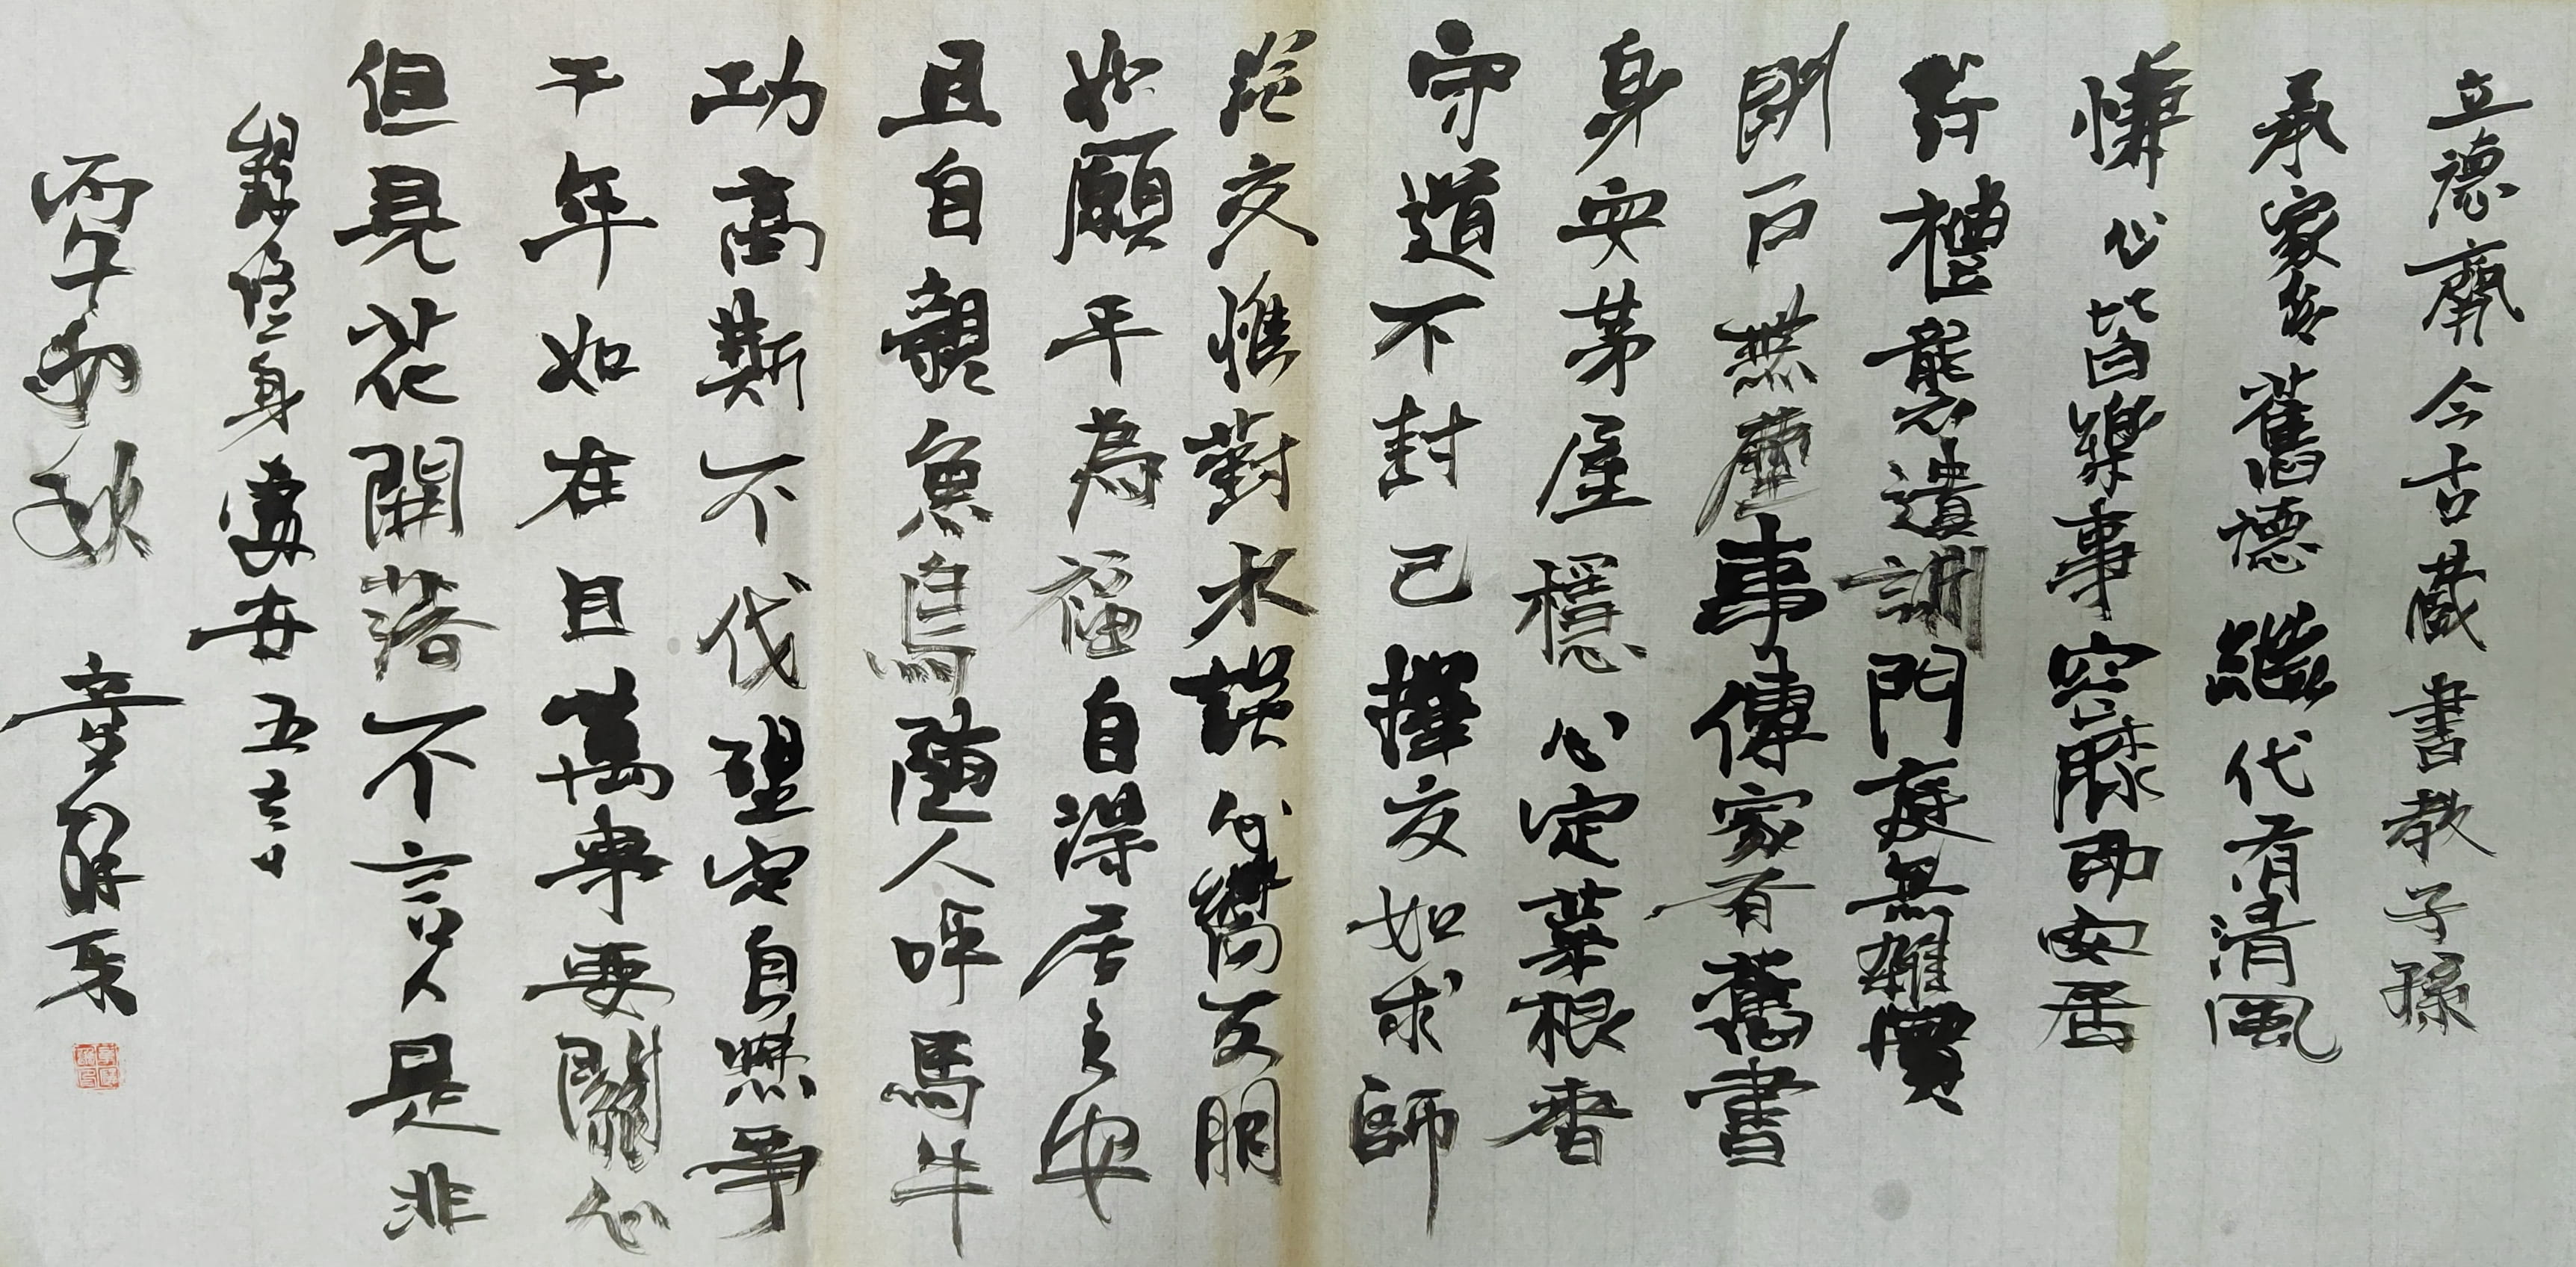 立德齊今古藏書教子孫
承家舊德繼代有清風
慊心皆樂事容膝即安居
詩禮襲遺訓門庭無雜賓
閉戶無塵事傳家有舊書
身安茅屋穩心定菜根香
守道不封己擇交如求師
交惟對水談何嚮友朋
如願平為福自得居之安
且自親魚鳥隨人呼馬牛
功高斯不伐望定自無爭
千年如在目萬事要關心
但見花開落不言人是非
身安五言
丙午初秋